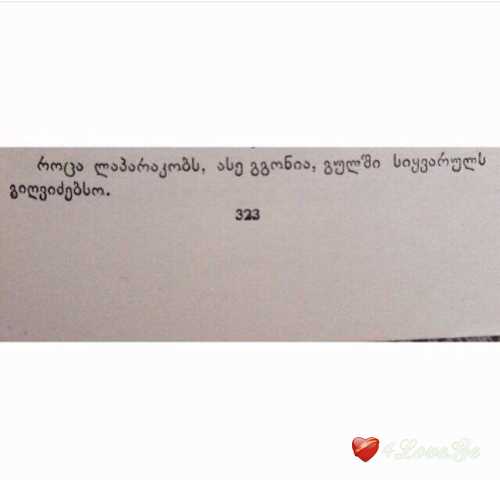 როცა ლაპარაკობს, ასე გგონია, გულში სიყვარულს
გიღვიძებსო.
323
4Love.Ge